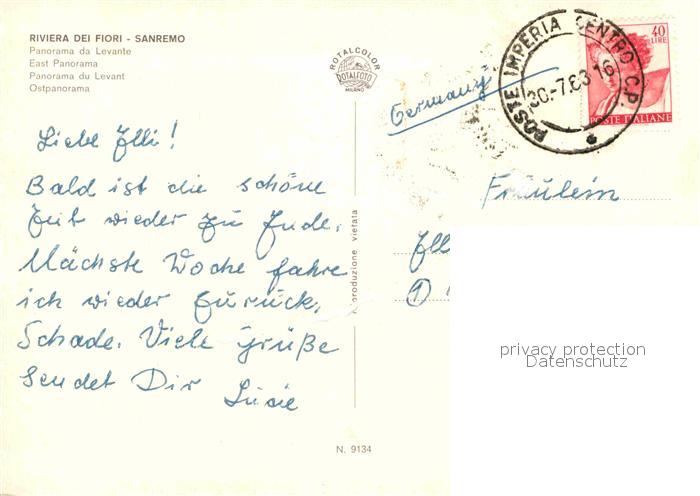 RIVIERA DEI FIORI - SANREMO
Panorama da Levante
East Panorama
Panorama du Levant
Ostpanorama
ROTALCOLOR
ROTALFOTO
MILANO
POSTE IMPERIA CENTRO C.P.
30.-7.63 16
40
LIRE
POSTE ITALIANE
Germany
Liebe Elli!
Bald ist die schöne
Zeit wieder zu Ende.
Nächste Woche fahre
ich wieder zurück,
Schade. Viele Grüße
sendet Dir Lucie
Fräulein
Elli
riproduzione vietata
privacy protection
Datenschutz
N. 9134